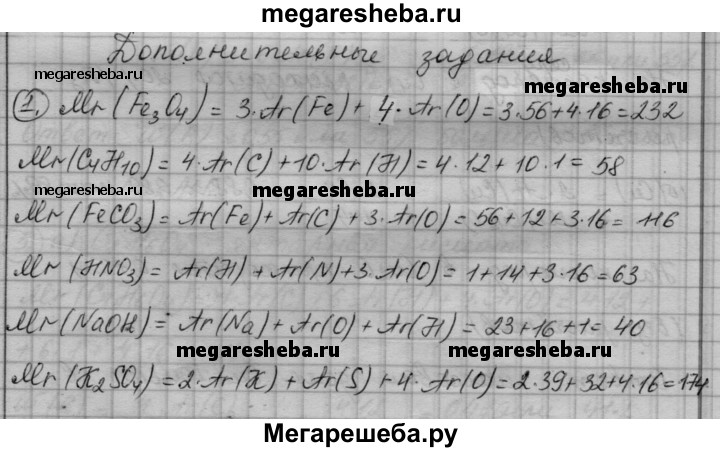 megaresheba.ru
Дополнительные задания
megaresheba.ru
megaresheba.ru
1. Mr(Fe3O4) = 3·Ar(Fe) + 4·Ar(O) = 3·56+4·16=232
Mr(C4H10) = 4·Ar(C)+10·Ar(H) = 4·12+10·1= 58
megaresheba.ru
megaresheba.ru
Mr(FeCO3) = Ar(Fe)+Ar(C)+3·Ar(O) = 56+12+3·16= 116
Mr(HNO3) = Ar(H)+Ar(N)+3·Ar(O) = 1+14+3·16=63
Mr(NaOH) = Ar(Na)+Ar(O)+Ar(H) = 23+16+1= 40
megaresheba.ru
megaresheba.ru
Mr(K2SO4) = 2·Ar(K)+Ar(S)+4·Ar(O) = 2·39+32+4·16=174
Мегарешеба.ру